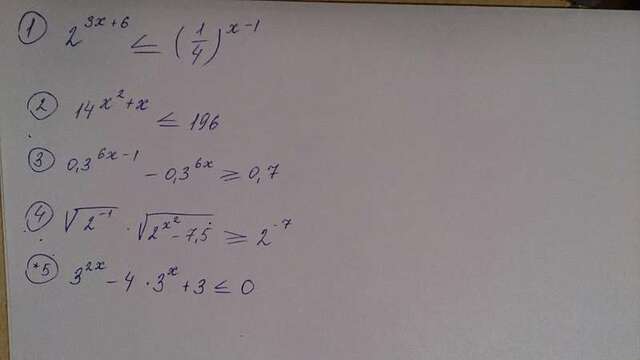 ① 2^{3x+6} ≤ (1/4)^{x-1}
② 14^{x²+x} ≤ 196
③ 0,3^{6x-1} - 0,3^{6x} ≥ 0,7
④ √(2^{-1}) · √(2^{x²-7,5}) ≥ 2^{-7}
*5 3^{2x} - 4 · 3^x + 3 ≤ 0